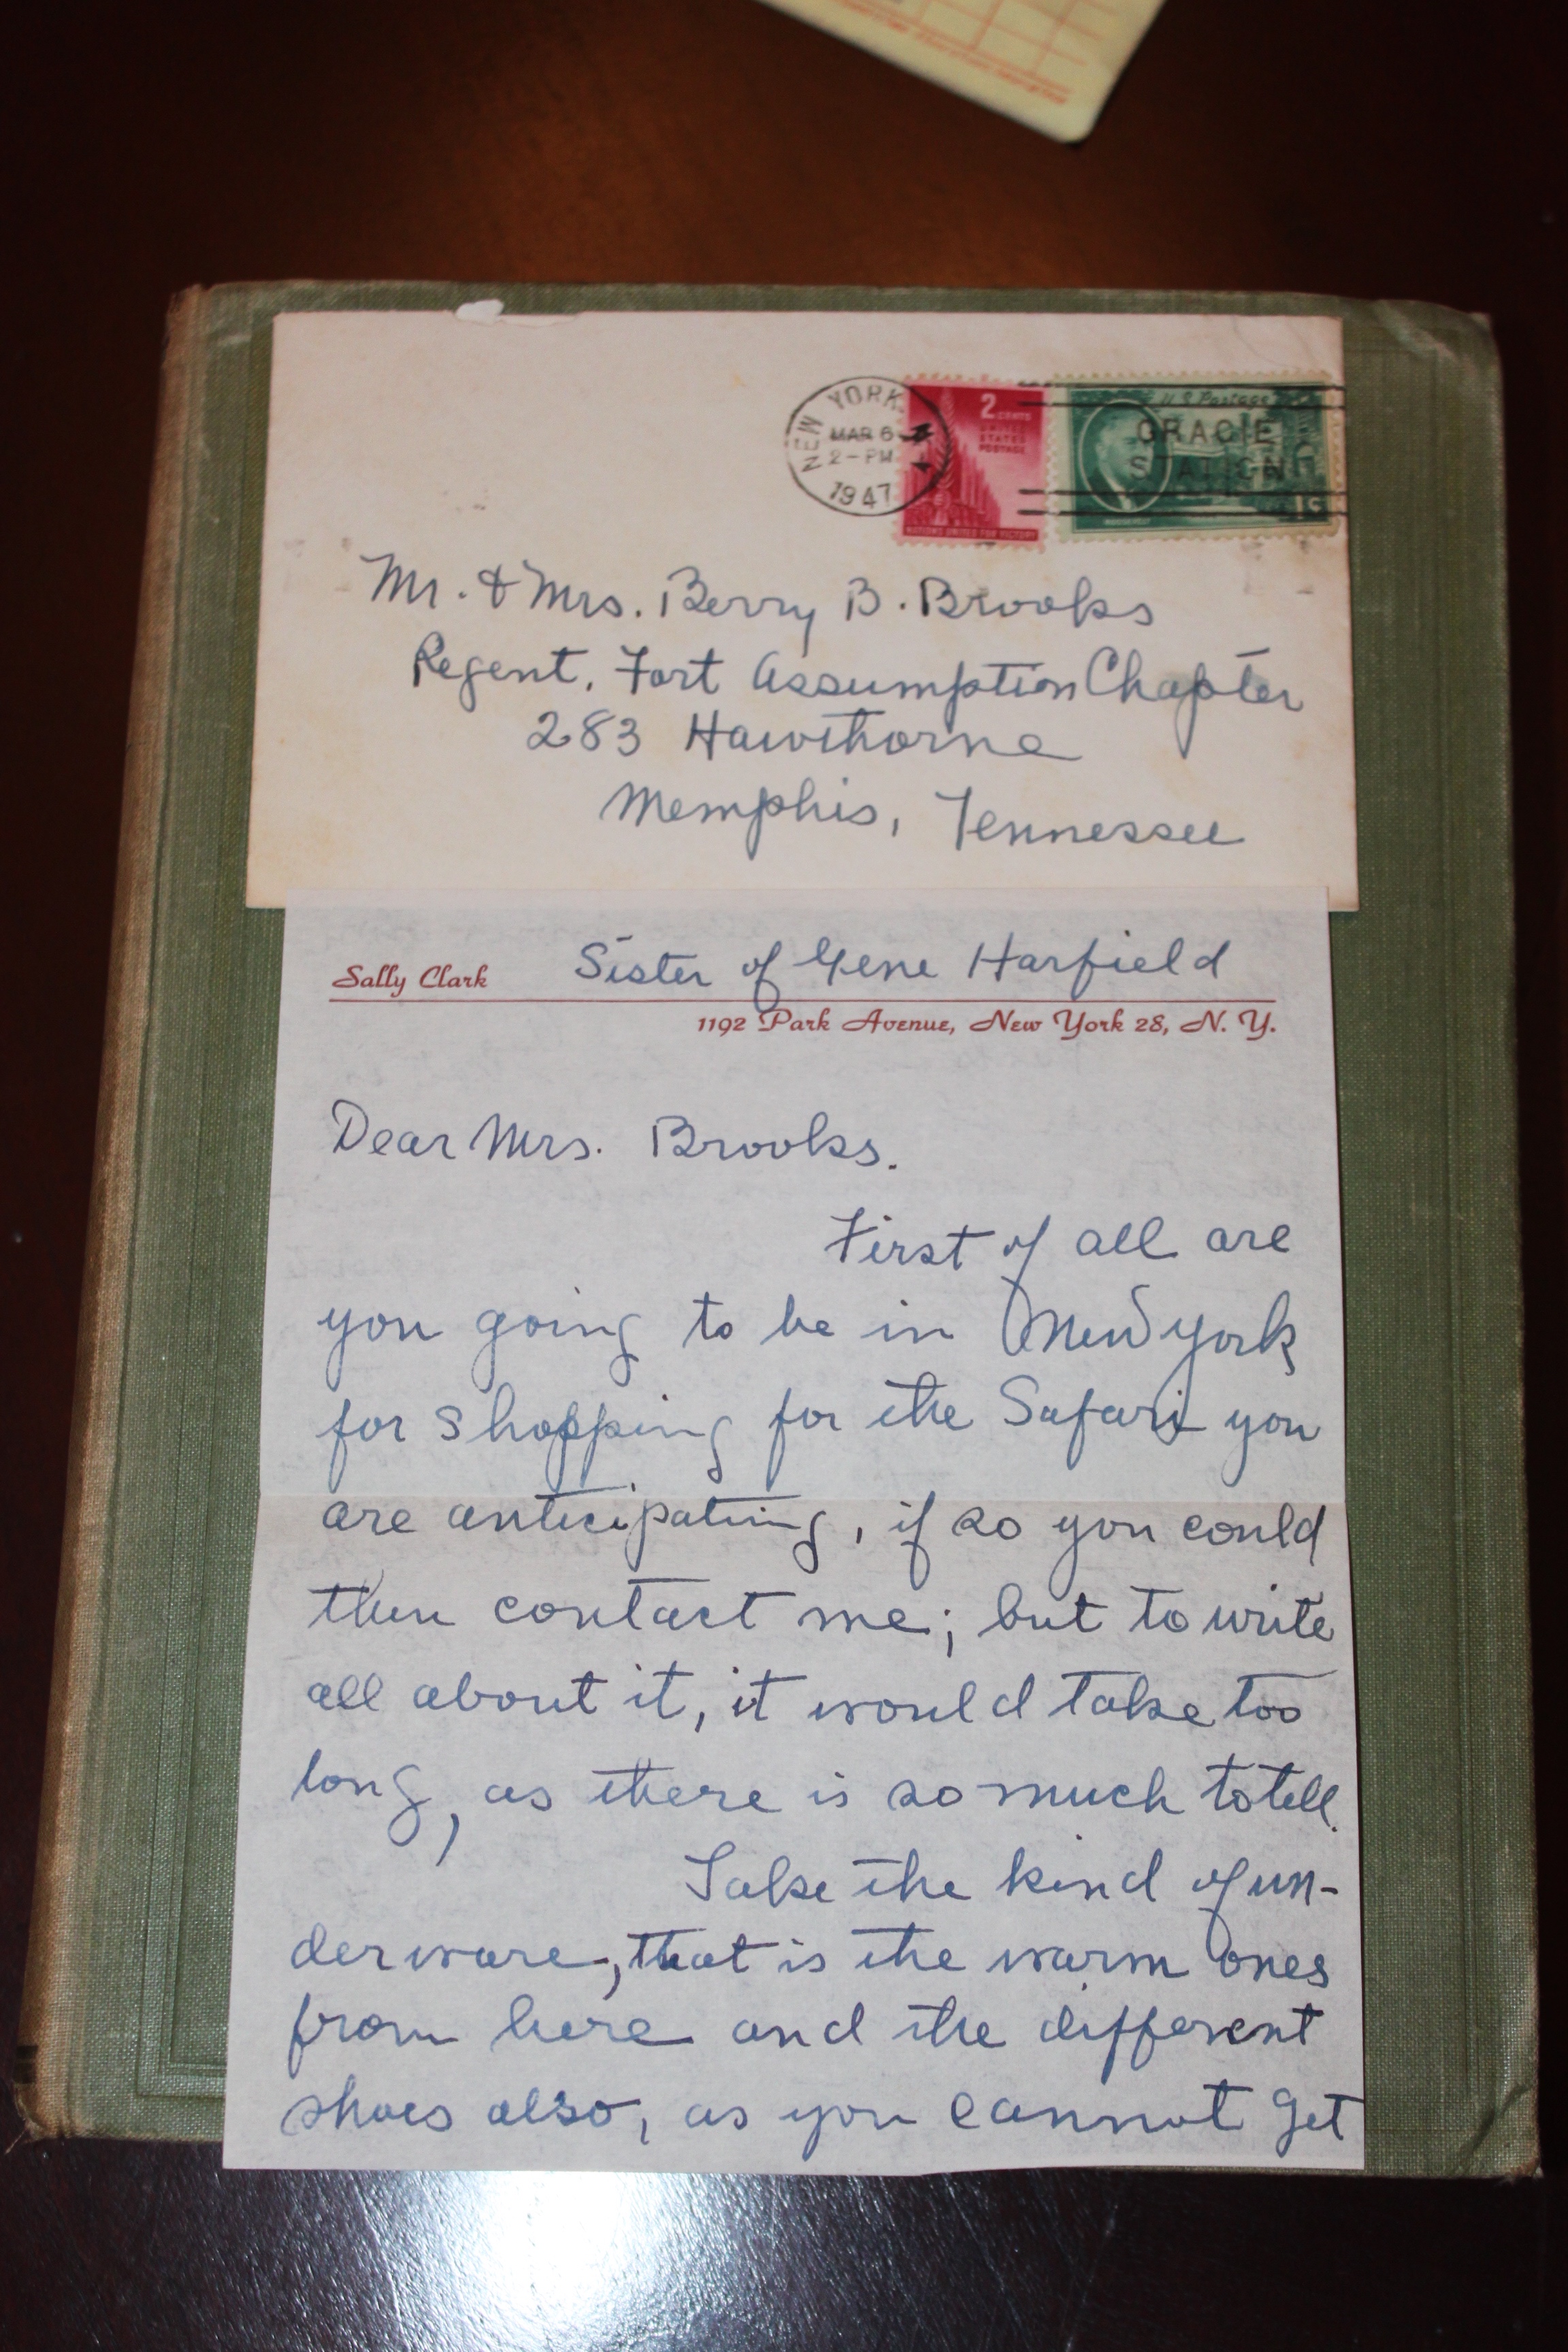 NEW YORK, N.Y.
MAR 6
2-PM
1947
2 CENTS
UNITED
STATES
POSTAGE
NATIONS UNITED FOR VICTORY
U.S. Postage
GRACIE
STATION
1¢
ROOSEVELT
Mr. & Mrs. Berry B. Brooks
Regent, Fort Assumption Chapter
283 Hawthorne
Memphis, Tennessee
Sally Clark Sister of Gene Harfield
1192 Park Avenue, New York 28, N. Y.
Dear Mrs. Brooks.
First of all are
you going to be in New York
for shopping for the Safari you
are anticipating, if so you could
then contact me; but to write
all about it, it would take too
long, as there is so much to tell.
Take the kind of un-
derware, that is the warm ones
from here and the different
shoes also, as you cannot get